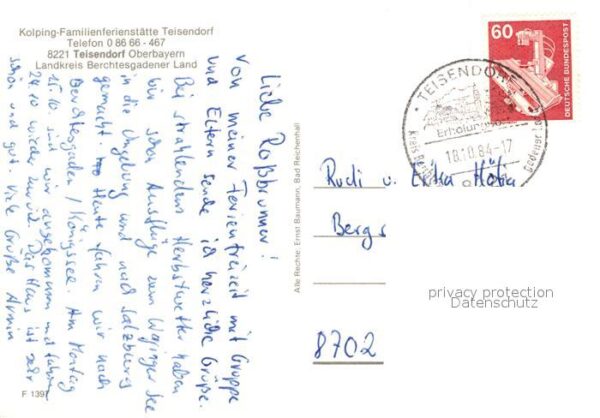 Kolping-Familienferienstätte Teisendorf
Telefon 0 86 66 - 467
8221 Teisendorf Oberbayern
Landkreis Berchtesgadener Land
Liebe Roßbrunner!
Von meiner Ferienfreizeit mit Gruppe
und Eltern sende ich herzliche Grüße.
Bei strahlendem Herbstwetter haben
wir schon Ausflüge zum Waginger See
in die Umgebung und nach Salzburg
gemacht. Heute fahren wir nach
Berchtesgaden / Königssee. Am Montag
15.10. sind wir angekommen und fahren
24.10 wieder zurück. Das Haus ist sehr
schön und gut. Viele Grüße Armin
F 1397
Alle Rechte: Ernst Baumann, Bad Reichenhall
60
DEUTSCHE BUNDESPOST
TEISENDORF
Erholungsort
18.10.84-17
Rudi u. Erika
Bergs
8702
privacy protection
Datenschutz